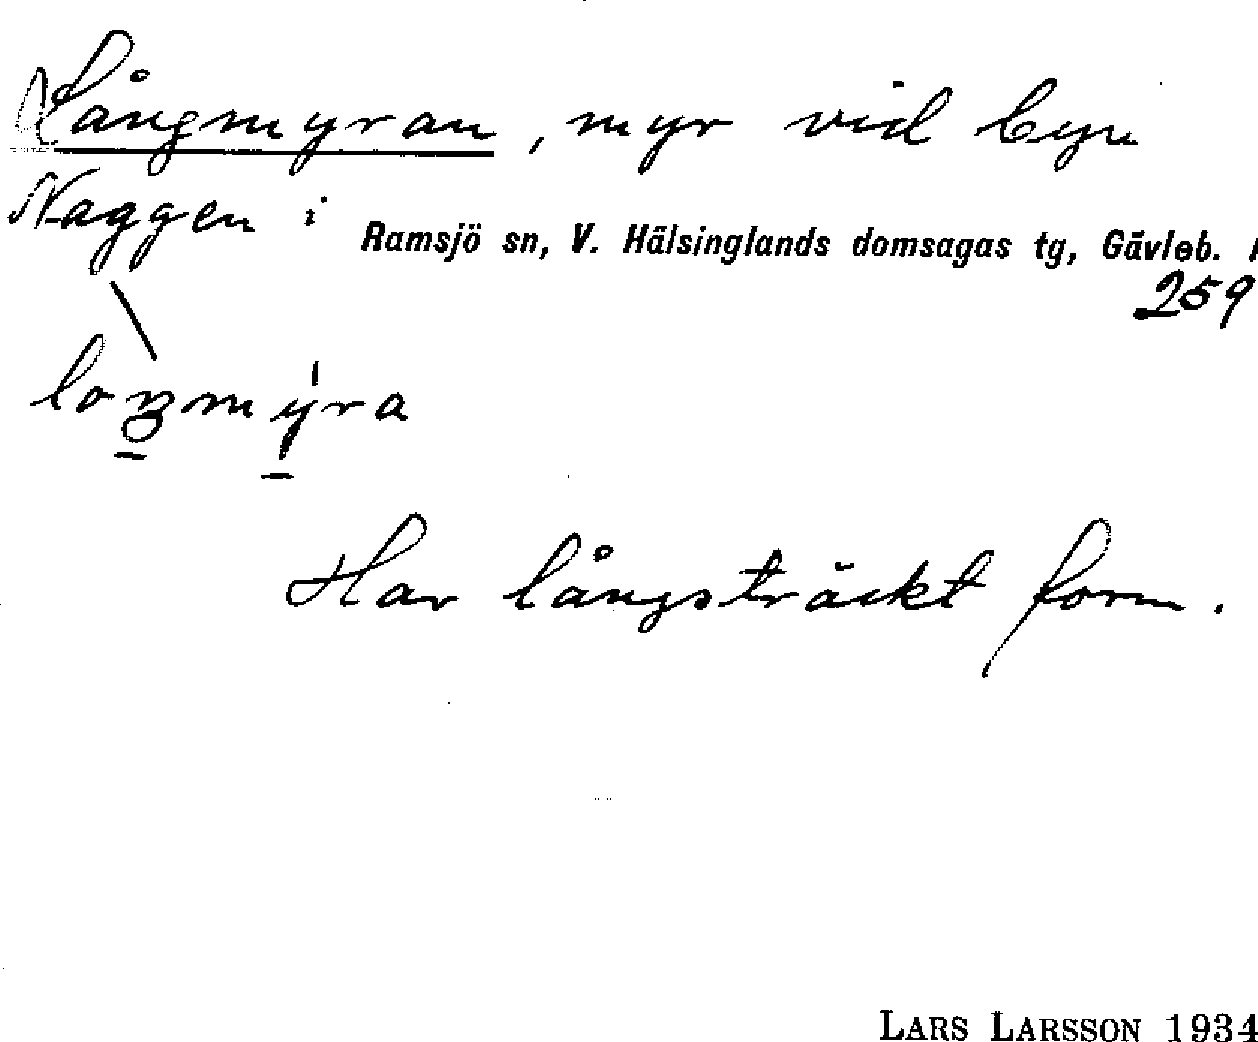 Långmyran, myr vid byn
Naggen i Ramsjö sn, V. Hälsinglands domsagas tg, Gävleb.
259
loŋmýra
Har långsträckt form.
LARS LARSSON 1934